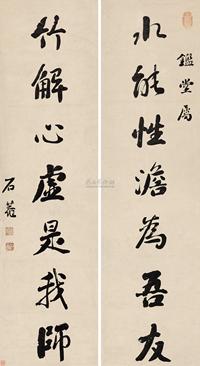 鑑堂屬
水能性澹為吾友
竹解心虛是我師
石菴